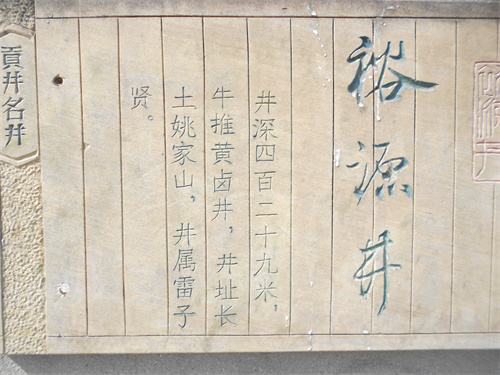 裕源井
井深四百二十九米，
牛推黄卤井，井址长
土姚家山，井属雷子
贤。
貢井名井